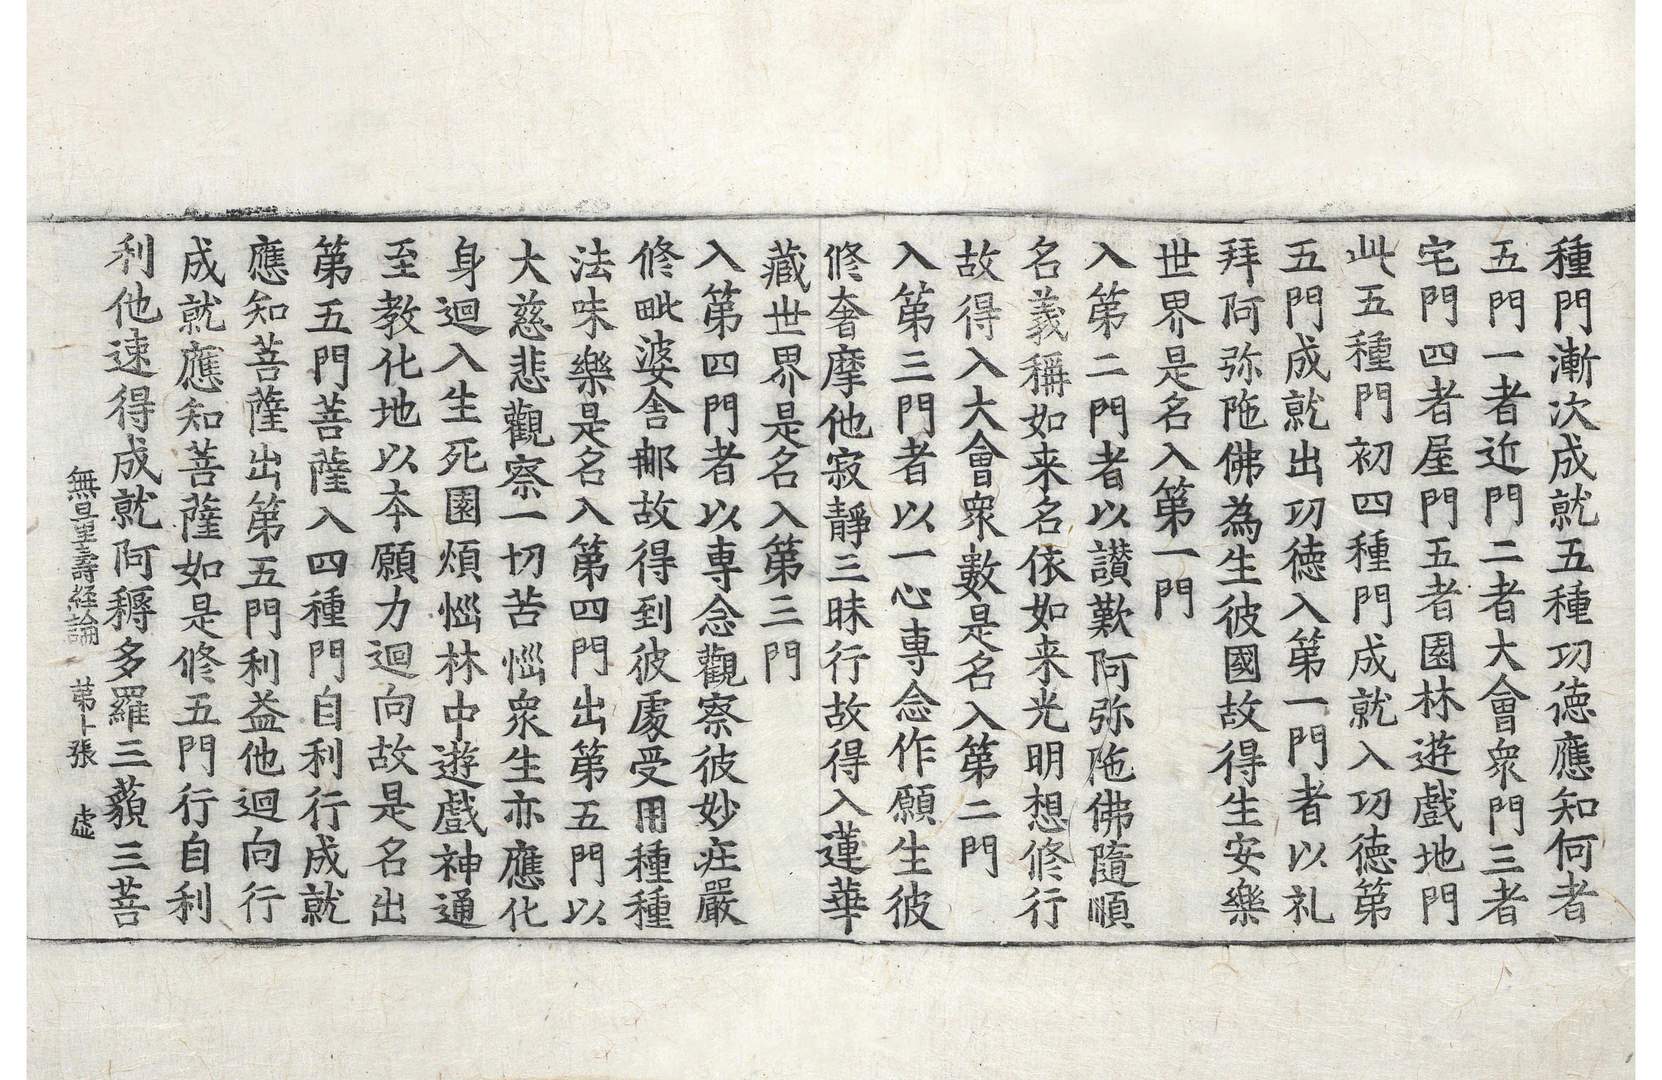 種門漸次成就五種功德應知何者
五門一者近門二者大會衆門三者
宅門四者屋門五者園林遊戲地門
此五種門初四種門成就入功德第
五門成就出功德入第一門者以礼
拜阿弥陁佛為生彼國故得生安樂
世界是名入第一門
入第二門者以讃歎阿弥陁佛隨順
名義稱如来名依如来光明想修行
故得入大會衆數是名入第二門
入第三門者以一心專念作願生彼
修奢摩他寂靜三昧行故得入蓮華
藏世界是名入第三門
入第四門者以專念觀察彼妙庄嚴
修毗婆舍那故得到彼處受用種種
法味樂是名入第四門出第五門以
大慈悲觀察一切苦惱衆生亦應化
身迴入生死園煩惱林中遊戲神通
至教化地以本願力迴向故是名出
第五門菩薩入四種門自利行成就
應知菩薩出第五門利益他迴向行
成就應知菩薩如是修五門行自利
利他速得成就阿耨多羅三藐三菩
無量壽經論 第十張 虛